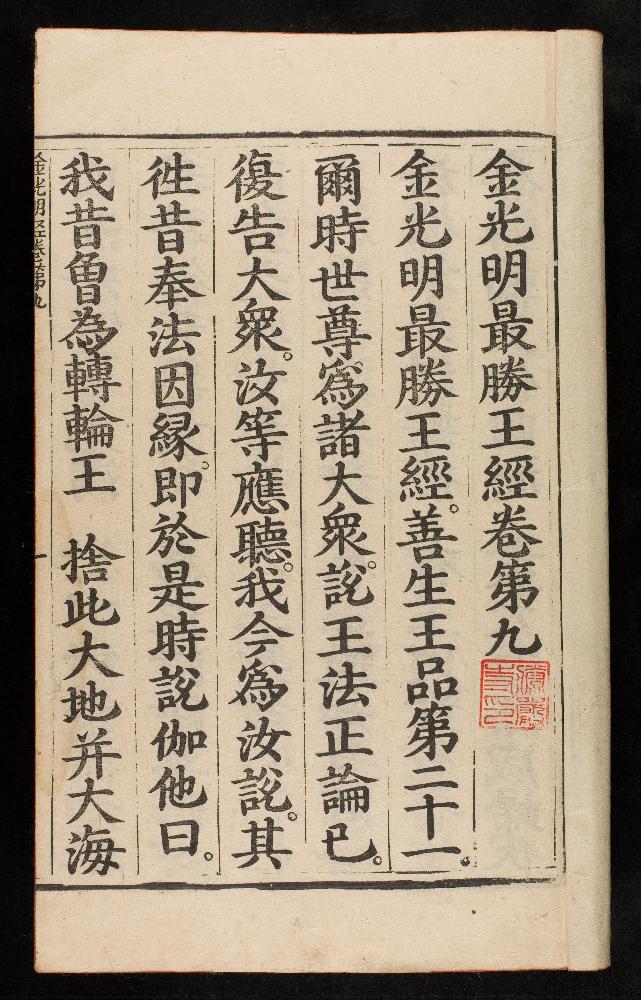 金光明最勝王經卷第九
金光明最勝王經。善生王品第二十一。
爾時世尊。為諸大衆。說王法正論已。
復告大衆。汝等應聽。我今為汝說。其
徃昔奉法因緣。即於是時說伽他曰。
我昔曾為轉輪王　捨此大地并大海
金光明經卷第九